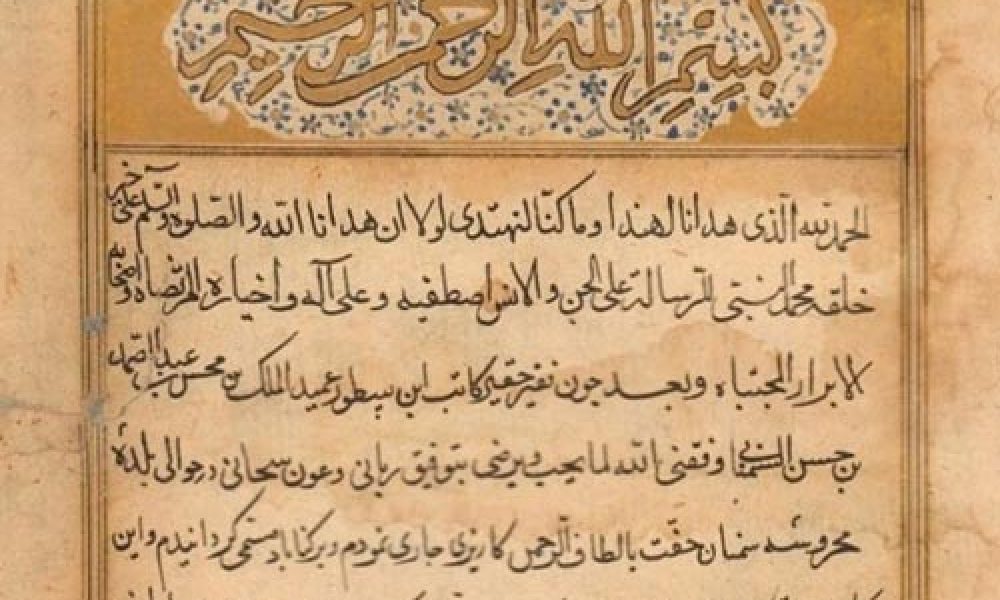 بسم الله الرحمن الرحيم
الحمد لله الذی هدانا لهذا وما کنا لنهتدی لولا ان هدانا الله والصلوة والسلم علی خیر
خلقه محمد النبی بالرسالة علی الجن والانس اصطفیه وعلی آله واخیاره المرتضاه واصحابه
الابرار المجتباه وبعد چون فقیر حقیر کاتب این سطور عمید الملک بن محسن عبد الصمد
بن حسن السمنانی وفقنی الله لما یحب ویرضی بتوفیق ربانی وعون سبحانی در حوالی بلده
محروسه سمنان حفت بالطاف الرحمن کاریزی جاری نمودم و برکناباد مسمی گردانیدم و این